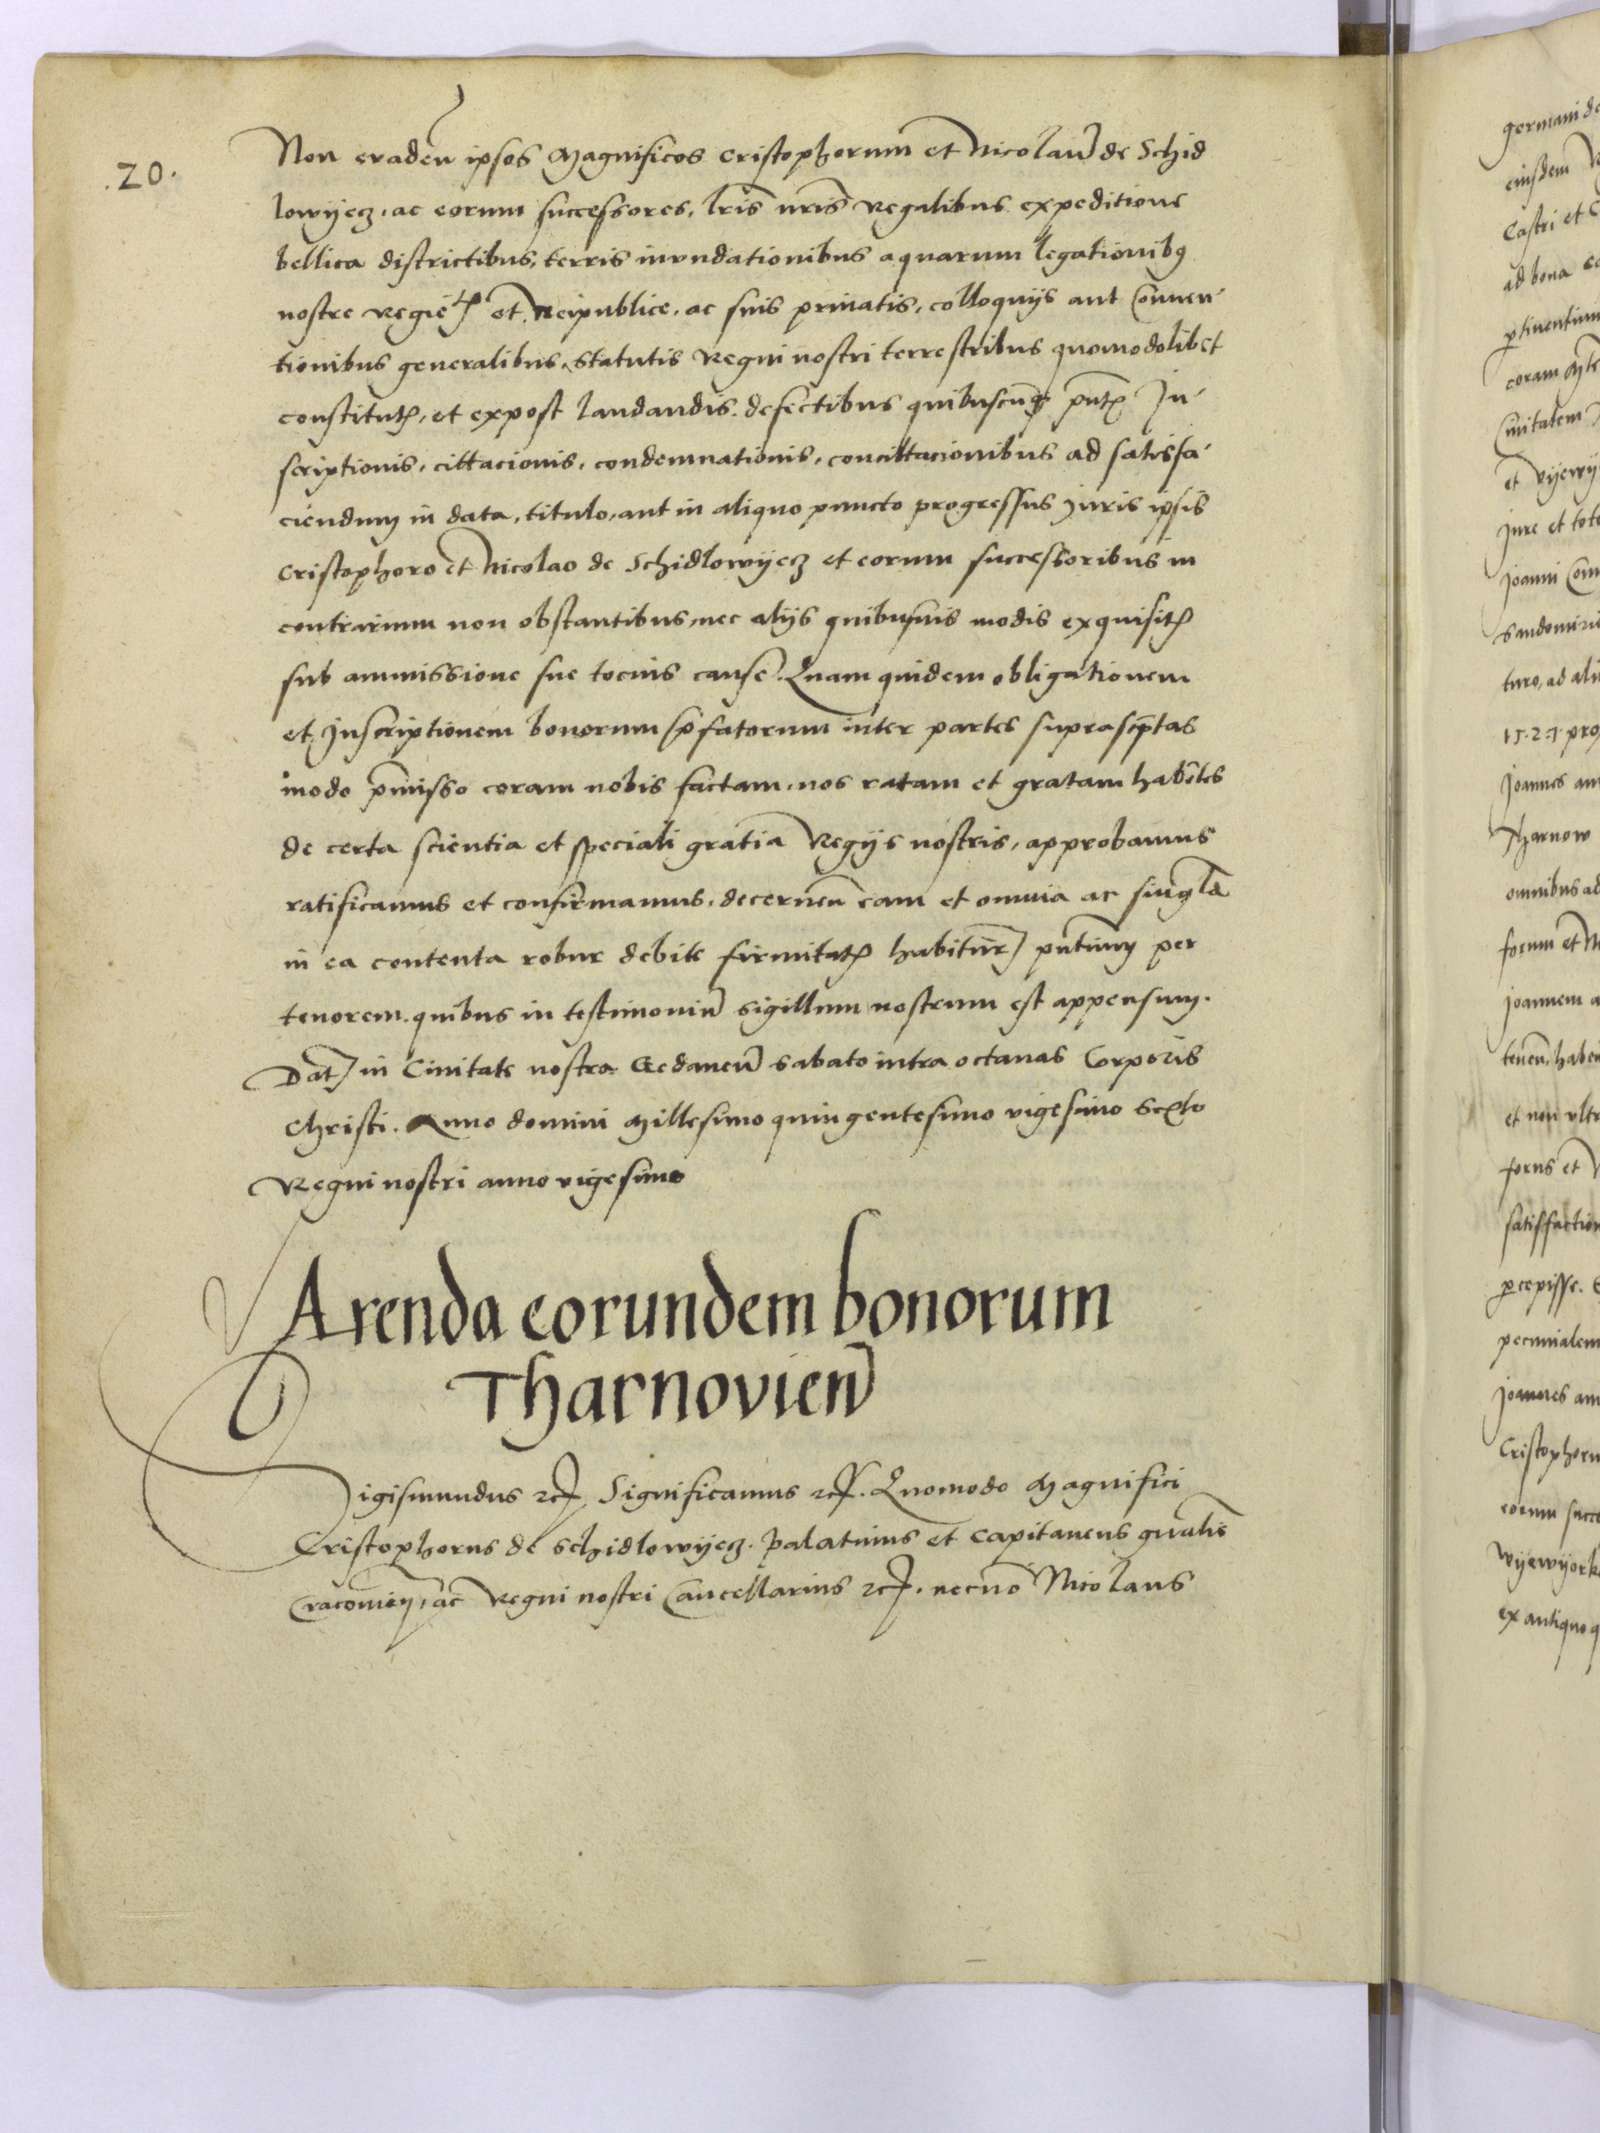 .20.
Non evaden̄ ipsos Magnificos Cristophorum et Nicolaū de Schid
lowyecz, ac eorum successores, lrīs nrīs Regalibus expeditione
bellica districtibus, terris inundationibus aquarum legationibꝫ
nostre Regie et Reipublice, ac suis privatis, colloquijs aut Conven-
tionibus generalibus, Statutis Regni nostri terrestribus quomodolibet
constitutꝭ, et expost laudandis. defectibus quibuscunqꝫ pn̄tꝭ In-
scriptionis, cittacionis, condemnationis, concittacionibus ad satisfa-
ciendum in data, titulo, aut in aliquo puncto progressus Juris ipsis
Cristophoro et Nicolao de Schidlowyecz et eorum successoribus in
contrarium non obstantibus, nec alijs quibusvis modis exquisitꝭ
sub ammissione sue tocius cause. Quam quidem obligationem
et Inscriptionem bonorum p̄fatorum inter partes suprascp̄tas
modo p̄misso coram nobis factam, nos ratam et gratam habētes
de certa scientia et speciali gratia Regijs nostris, approbamus
ratificamus et confirmamus, decernen̄ eam et omnia ac singla
in ea contenta robur debite firmitatꝭ habitur̄ pn̄tium per
tenorem. quibus in testimoniū sigillum nostrum est appensum.
Dat̄ in Civitate nostra Gedanen̄ sabato intra octavas Corporis
Christi. Anno domini Millesimo quingentesimo vigesimo Sexto
Regni nostri anno vigesimo
Arenda eorundem bonorum
Tharnovien̄
Sigismundus etc. Significamus etc. Quomodo Magnifici
Cristophorus de Schidlowyecz. palatinus et Capitaneus gnālis
Cracovien̄, ac Regni nostri Cancellarius etc. necnō Nicolaus
germani de
eiusdem
Castri et
ad bona
ptinentium
coram
Civitatem
et
Jure et
Joanni
Sandomiri
turo, ad
1527
Joannes
Tharnow
omnibus ad
forum et
Joannem a
tenen, haben
et non ultr
forus et
satisfaction
pcepisse.
pecunialem
Joannes
Cristophoru
eorum succe
wyewyork
ex antiquo q